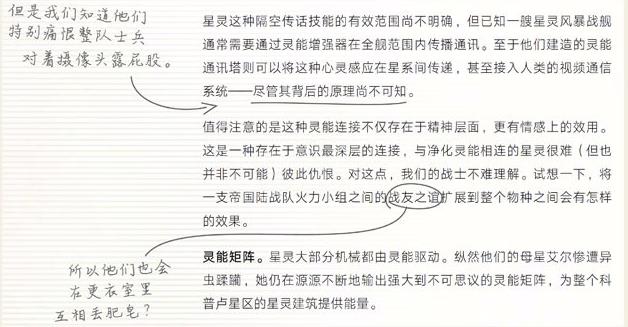 但是我们知道他们
特别痛恨整队士兵
对着摄像头露屁股。
星灵这种隔空传话技能的有效范围尚不明确，但已知一艘星灵风暴战舰
通常需要通过灵能增强器在全舰范围内传播通讯。至于他们建造的灵能
通讯塔则可以将这种心灵感应在星系间传递，甚至接入人类的视频通信
系统——尽管其背后的原理尚不可知。
值得注意的是这种灵能连接不仅存在于精神层面，更有情感上的效用。
这是一种存在于意识最深层的连接，与净化灵能相连的星灵很难（但也
并非不可能）彼此仇恨。对这点，我们的战士不难理解。试想一下，将
一支帝国陆战队火力小组之间的战友之谊扩展到整个物种之间会有怎样
的效果。
所以他们也会
在更衣室里
互相丢肥皂？
灵能矩阵。星灵大部分机械都由灵能驱动。纵然他们的母星艾尔惨遭异
虫蹂躏，她仍在源源不断地输出强大到不可思议的灵能矩阵，为整个科
普卢星区的星灵建筑提供能量。